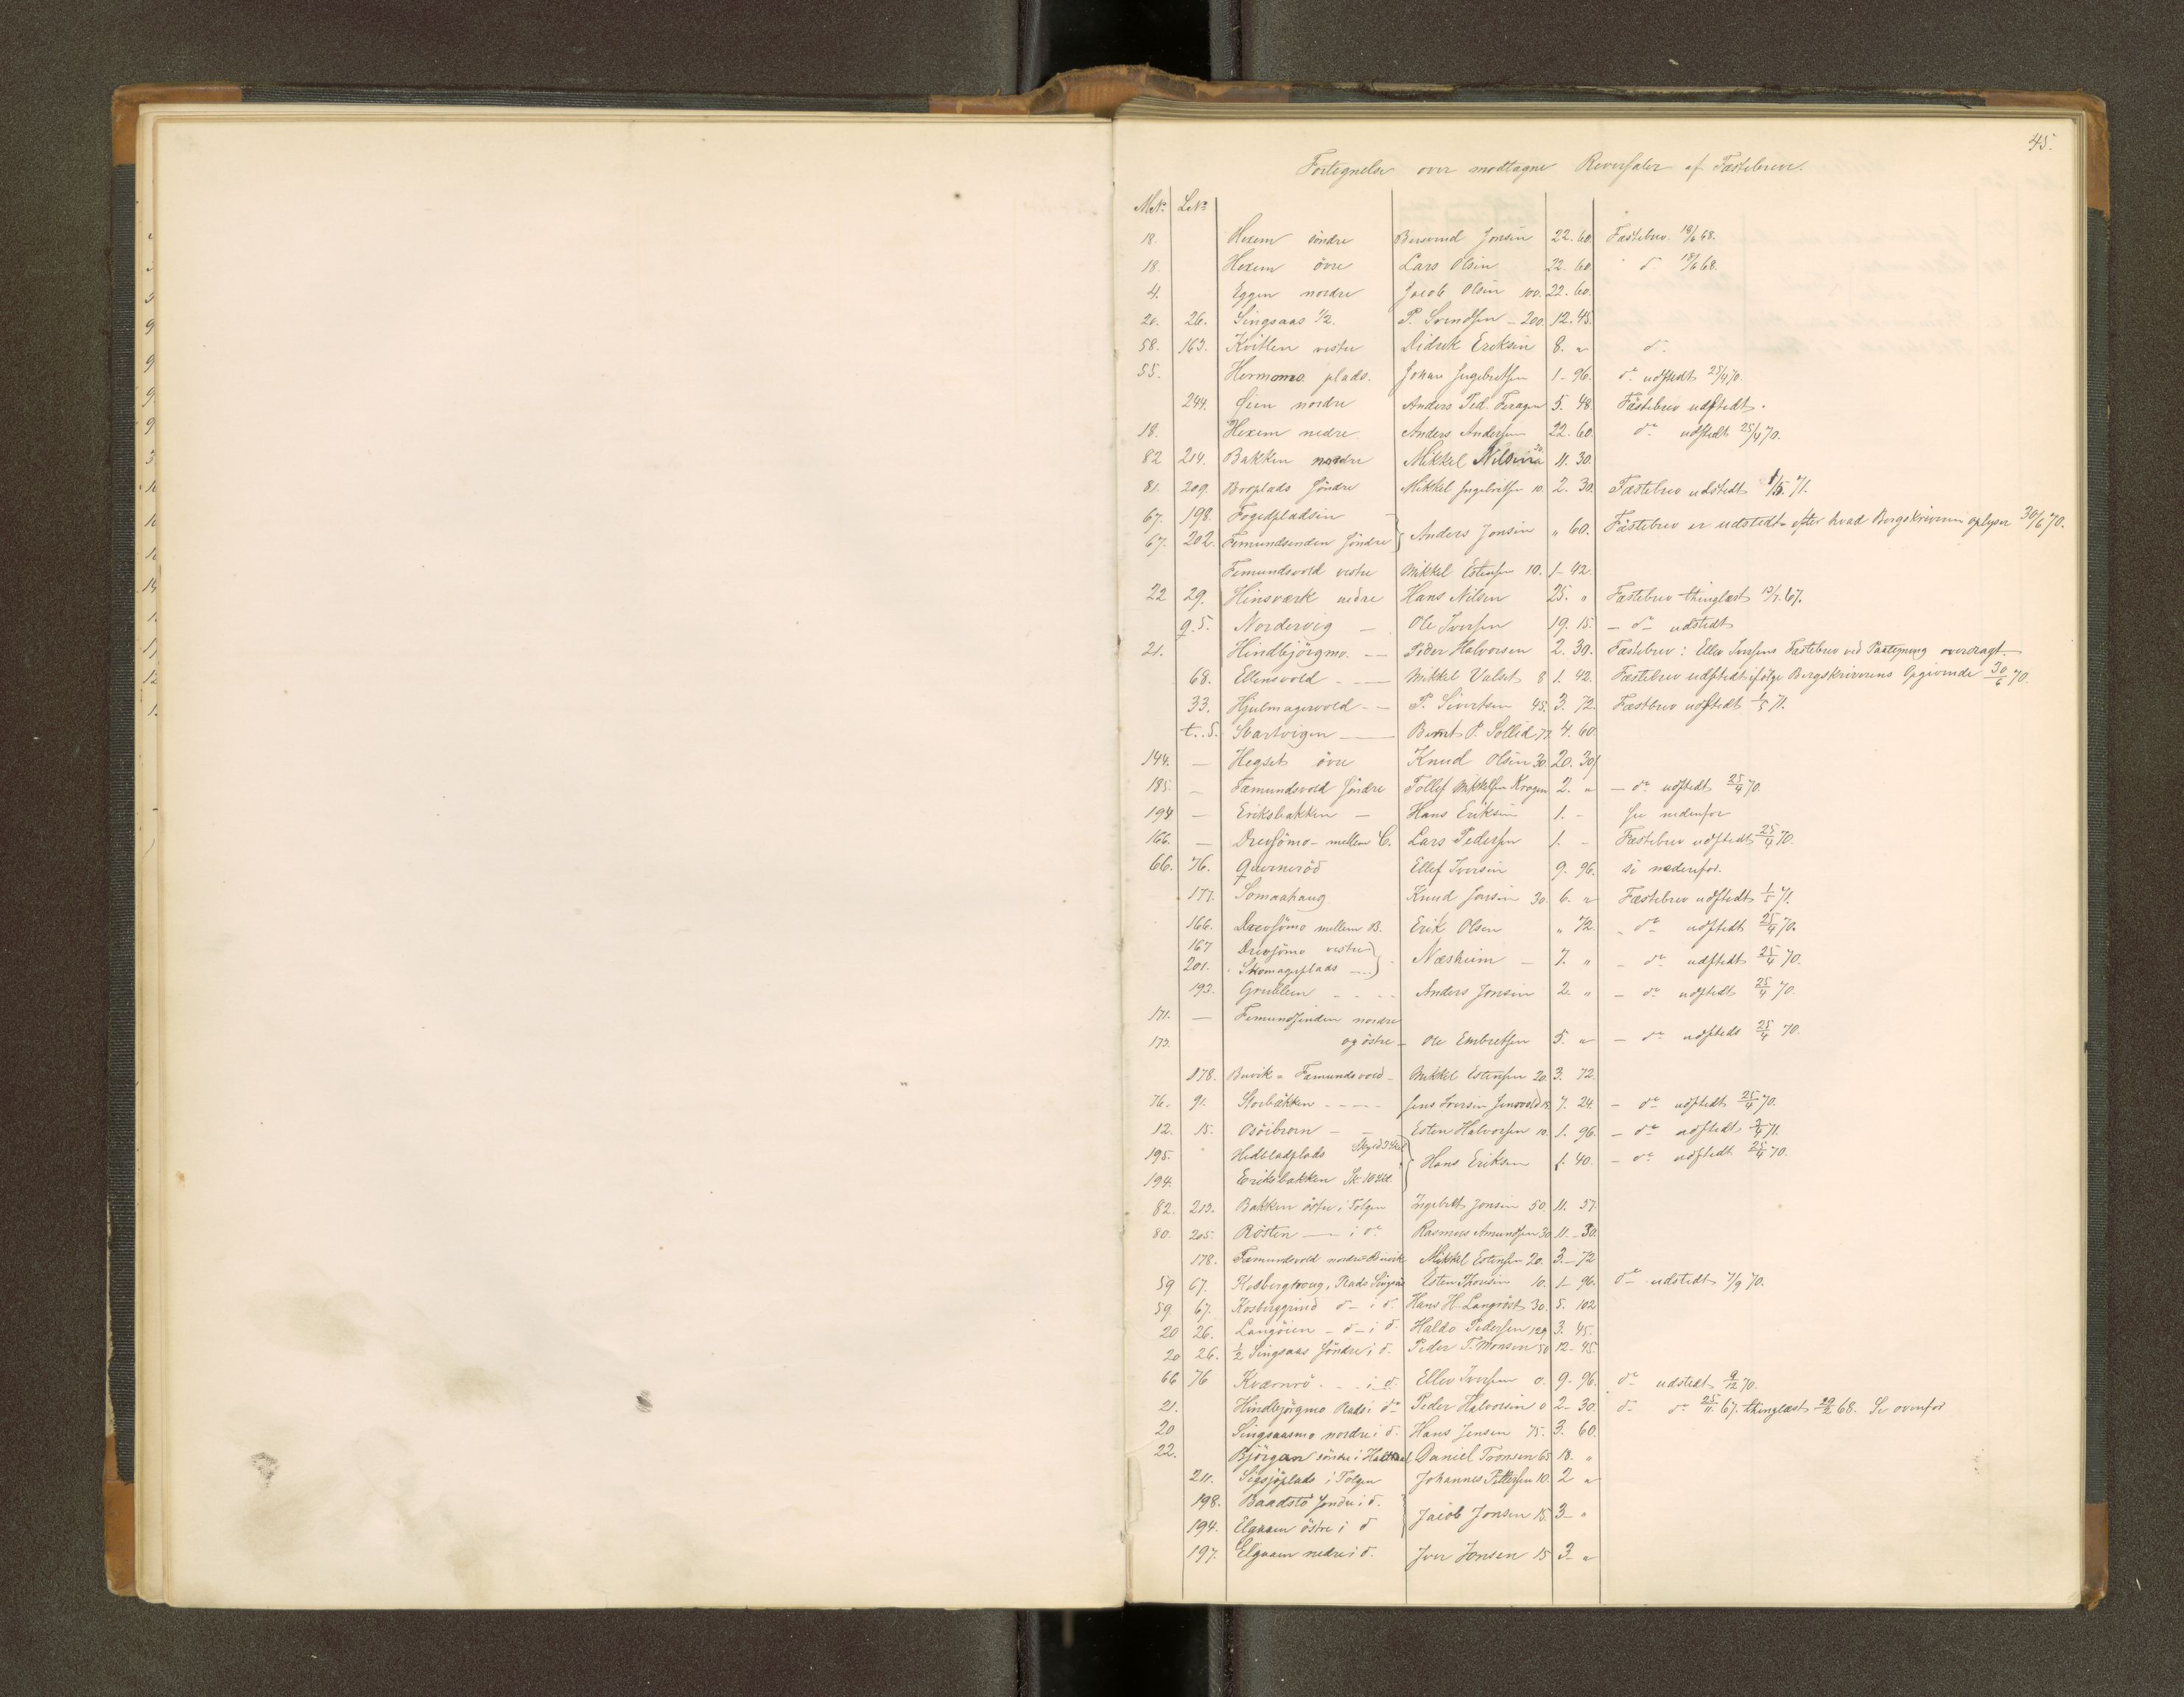 45.
Fortegnelse over modtagne Reversaler af Fæstebreve.
M.No. L.No
18. Hexem söndre Bersvend Jonsen 22. 60. Fæstebrev 18/6 68.
18. Hexem övre Lars Olsen 22. 60. do 18/6 68.
4. Eggen nordre Jacob Olsen 100. 22. 60.
20. 26. Singsaas 1/2. P. Svendsen - 200. 12. 45.
58. 163. Kvitlen vestre Didrik Eriksen 8. " do
55. Hermomo plads. Johan Ingebretsen 1 - 96. do udstedt 25/4 70.
244. Öien nordre Anders Ped. Feragen 5. 48. Fæstebrev udstedt.
18. Hexem nedre. Anders Andersen 22. 60. do udstedt 25/4 70.
82 214. Bakken nordre Mikkel Nilsen 11. 30.
81. 209. Broplads Söndre Mikkel Ingebretsen 10. 2. 30. Fæstebrev udstedt 1/5. 71.
67. 198. Fogedpladsen
67. 202. Femundsenden Söndre } Anders Jonsen " 60. Fæstebrev er udstedt efter hvad Bergskriveren oplyser 30/6 70.
Femundsvold vestre Mikkel Estensen 10. 1 - 42.
22 29. Hinsværk nedre Hans Nilsen 25. " Fæstebrev thinglæst 13/7. 67.
q. 5. Nordervig - Ole Iversen 19. 15. - do udstedt
21. Hindbjörgmo. - - Peder Halvorsen 2. 30. Fæstebrev: Ellev Iversens Fæstebrev ved Paategning overdragt.
68. Ellensvold - - Mikkel Valset 8 1. 42. Fæstebrev udstedt ifölge Bergskriverens Opgivende 30/6 70.
33. Hjulmagervold - - P. Sivertsen 45. 3. 72. Fæstbrev udstedt 1/5 71.
t. 5. Svartvigen - Bernt P. Sollid 77. 4. 60
144. - Hegset övre Knud Olsen 30. 20. 30
185. - Fæmundsvold Söndre Tollef Mikkelsen Krogen 2. " - do udstedt 25/4 70.
194 - Eriksbakken - Hans Eriksen 1. - see nedenfor
166. - Drevsömo - mellem C. Lars Pedersen 1. - Fæstebrev udstedt 25/4 70.
66. 76. Qverneröd Ellef Iversen 9. 96. se nedenfor.
177. Somaahaug Knud Jonsen 30. 6. " Fæstebrev udstedt 1/5 71.
166. Drevsömo mellem B. Erik Olsen " 72. - do udstedt 25/4 70.
167 Drevsömo vestre
201. Skomagerplads - - } Næsheim - 7. " - do udstedt 25/4 70.
193. Grublien - - - - Anders Jonsen 2. " - do udstedt 25/4 70.
171. - Femundsenden nordre
173. og östre - Ole Embretsen 5. " - do udstedt 25/4 70.
178. Buvik - Fæmundsvold - Mikkel Estensen 20. 3. 72.
76. 91. Storbækken - - - - Jens Iversen Jensvold 15. 7. 24. - do udstedt 25/4 70.
12. 15. Osöibroen - - Esten Halvorsen 10. 1. 96. - do udstedt 3/4 71.
195. Hedbladplads
194. Eriksbakken Sk. 10 Skl. } Hans Eriksen 1. 40. - do udstedt 25/4 70.
82. 213. Bakken östre i Tolgen Ingebrit Jonsen 50. 11. 57.
80. 205. Rösten - i do Rasmus Amundsen 30 11. - 30.
178. Fæmundsvold nordre Buvik Mikkel Estensen 20. 3. - 72
59 67. Kosbergvoug, Plads Singsaas Esten Thoresen 10. 1 - 96. do udstedt 7/9 70.
59. 67. Kosberggrind do - i do Hans H. Langröst 30. 5. 102
20 26. Langöien - do - i do Haldo Pedersen 129. 3. 45.
20 26. 1/2 Singsaas Söndre i do Peder T. Monsen 50 12 - 45
66 76 Kværnrö - - - i do Ellev Iversen 0. 9 - 96. do udstedt 9/12 70.
21. Hindbjörgmo Plads i do Peder Halvorsen 0 2 - 30. do do 25/11. 67. thinglæst 29/2 68. Se ovenfor
20 Singsaasmo nordre i do Hans Jensen 75. 3. 60.
22. Bjørgan söndre i Haltdal Daniel Tronsen 65 18. "
211. Sigsjöplads i Tolgen Johannes Pettersen 10. 2 "
198. Baadstö Söndre i do
194. Elgaaen östre i do } Jacob Jonsen 15. 3 - "
197. Elgaaen nedre i do Iver Jonsen 15 3 - "